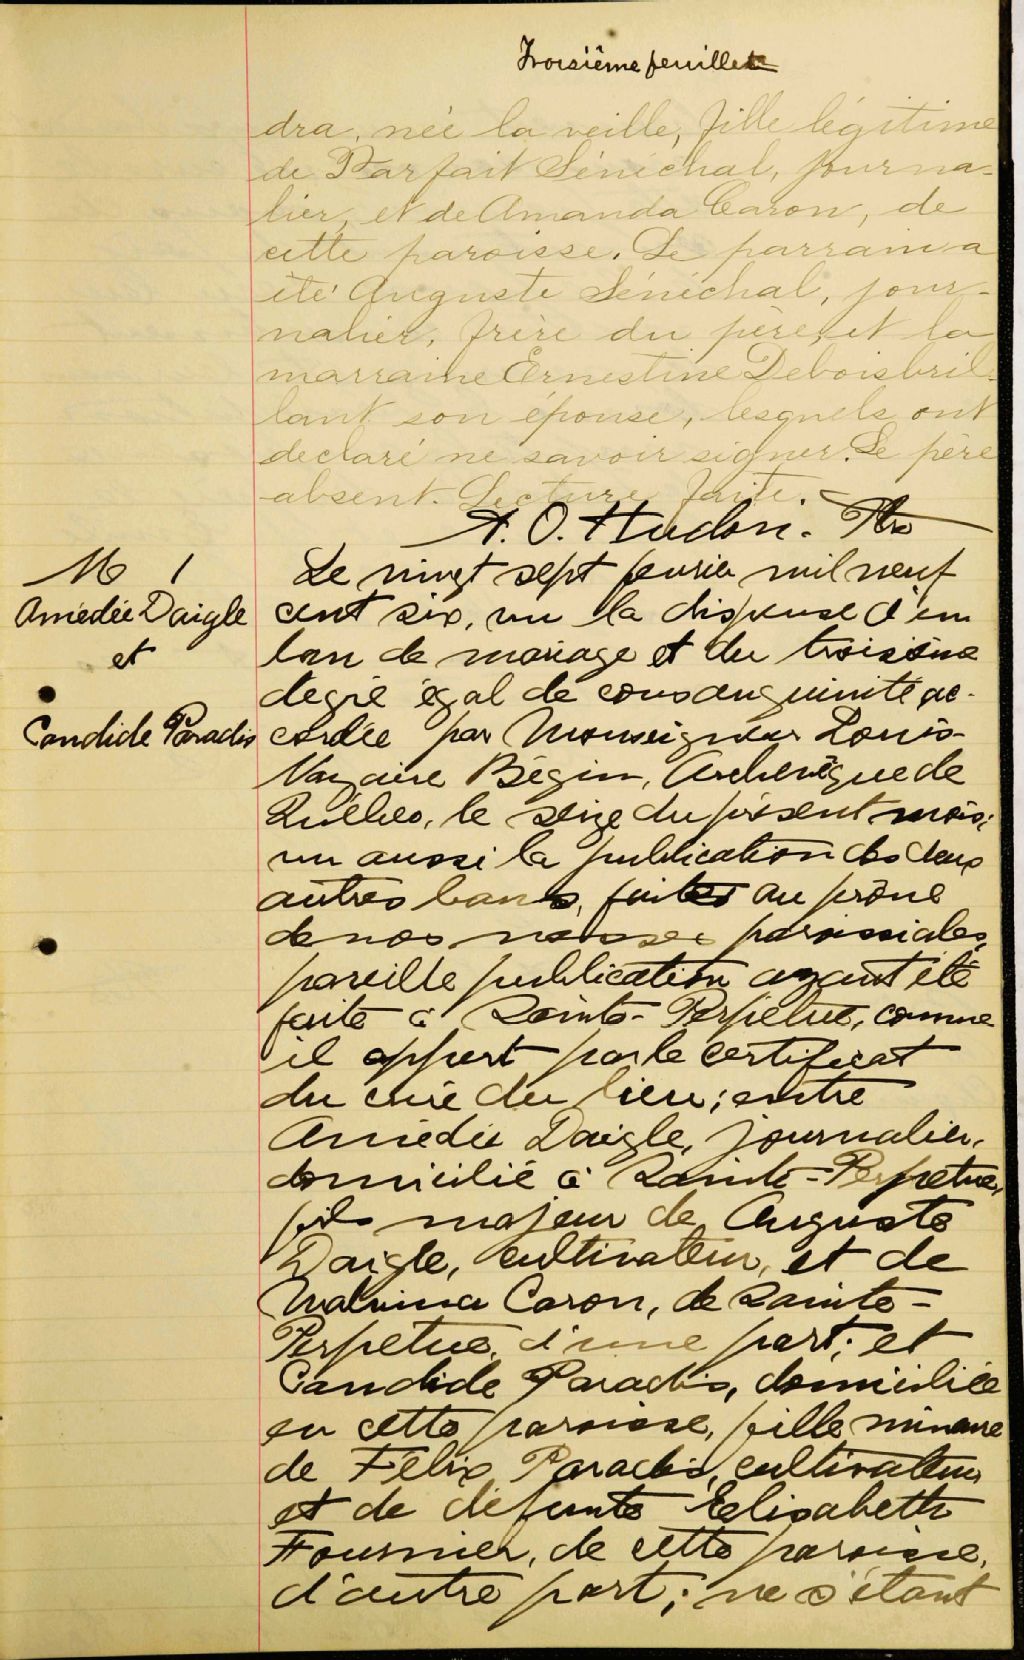 Troisième feuillet
dra, née la veille, fille légitime
de Parfait Sénéchal, journa-
lier, et de Amanda Caron, de
cette paroisse. Le parrain a
été Auguste Sénéchal, jour-
nalier, frère du père, et la
marraine Ernestine Deboisbril-
lant son épouse, lesquels ont
declaré ne savoir signer. Le père
absent. Lecture faite.
A. O. Hudon. Ptre
M 1
Amédée Daigle
et
Candide Paradis
Le vingt sept février mil neuf
cent six, vu la dispense d'un
ban de mariage et du troisième
degré égal de consanguinité ac-
cordée par Monseigneur Louis-
Nazaire Bégin, Archevêque de
Québec, le seize du présent mois;
vu aussi la publication des deux
autres bans, faites au prône
de nos messes paroissiales,
pareille publication ayant été
faite à Sainte-Perpétue, comme
il appert par le certificat
du curé du lieu; entre
Amédée Daigle, journalier,
domicilié à Sainte-Perpetue,
fils majeur de Auguste
Daigle, cultivateur, et de
Malvina Caron, de Sainte-
Perpetue, d'une part; et
Candide Paradis, domiciliée
en cette paroisse, fille mineure
de Félix Paradis, cultivateur
et de défunte Elisabeth
Fournier, de cette paroisse,
d'autre part; ne s'étant